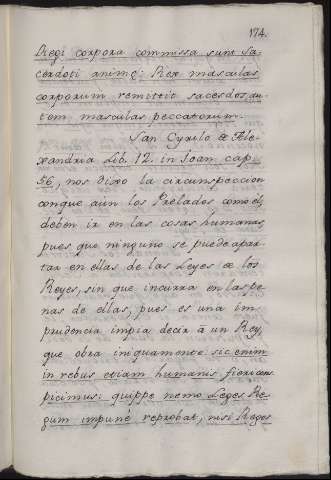 174.
Regi corpora commissa sunt Sa-
cerdoti animę: Rex masculas
corporum remittit sacerdos au-
tem masculas peccatorum.
San Cyrilo de Ale-
xandria Lib. 12. in Joan. cap.
56, nos dixo la circunspeccion
conque aun los Prelados como el,
deben ir en las cosas humanas,
pues que ninguno se puede apar-
tar en ellas de las Leyes de los
Reyes, sin que incurra en las pe-
nas de ellas, pues es una im-
prudencia impia decir à un Rey,
que obra iniquamente sic enim
in rebus etiam humanis fieri cons-
picimus: quippe nemo Leges Re-
gum impunè reprobat, nisi Reges